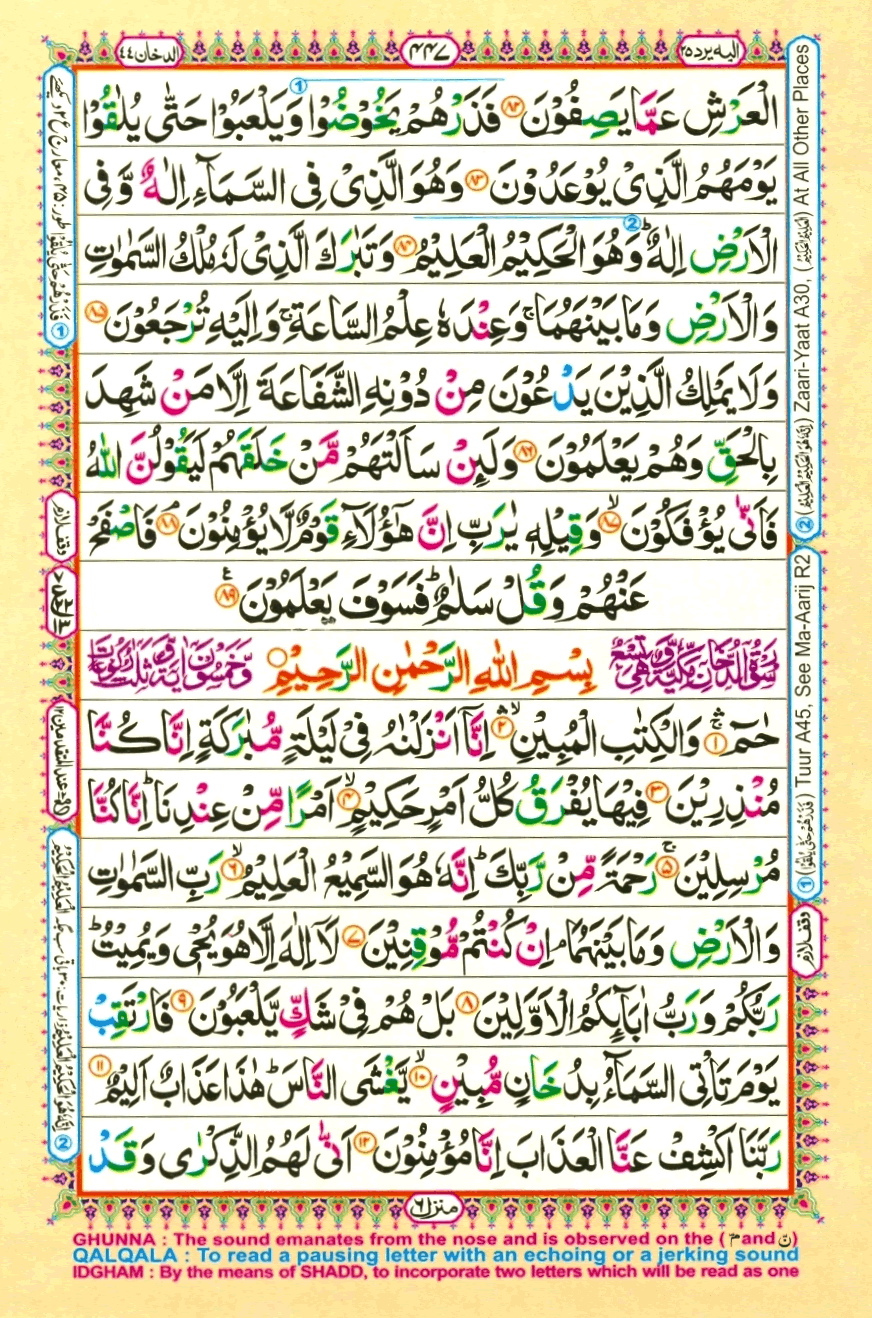 الدخان ٤٤
٤٤٧
اليه يرد ٢٥
الْعَرْشِ عَمَّا يَصِفُوْنَ ﴿٨٢﴾ فَذَرْهُمْ يَخُوْضُوْا وَيَلْعَبُوْا حَتّٰى يُلٰقُوْا
يَوْمَهُمُ الَّذِىْ يُوْعَدُوْنَ ﴿٨٣﴾ وَهُوَ الَّذِىْ فِى السَّمَآءِ اِلٰهٌ وَّفِى
الْاَرْضِ اِلٰهٌ ؕ وَهُوَ الْحَكِيْمُ الْعَلِيْمُ ﴿٨٤﴾ وَتَبٰرَكَ الَّذِىْ لَهٗ مُلْكُ السَّمٰوٰتِ
وَالْاَرْضِ وَمَا بَيْنَهُمَا ۚ وَعِنْدَهٗ عِلْمُ السَّاعَةِ ۚ وَاِلَيْهِ تُرْجَعُوْنَ ﴿٨٥﴾
وَلَا يَمْلِكُ الَّذِيْنَ يَدْعُوْنَ مِنْ دُوْنِهِ الشَّفَاعَةَ اِلَّا مَنْ شَهِدَ
بِالْحَقِّ وَهُمْ يَعْلَمُوْنَ ﴿٨٦﴾ وَلَئِنْ سَاَلْتَهُمْ مَّنْ خَلَقَهُمْ لَيَقُوْلُنَّ اللّٰهُ
فَاَنّٰى يُؤْفَكُوْنَ ۙ﴿٨٧﴾ وَقِيْلِهٖ يٰرَبِّ اِنَّ هٰٓؤُلَاۤءِ قَوْمٌ لَّا يُؤْمِنُوْنَ ۘ﴿٨٨﴾ فَاصْفَحْ
عَنْهُمْ وَقُلْ سَلٰمٌ ؕ فَسَوْفَ يَعْلَمُوْنَ ﴿٨٩﴾
سُوْرَةُ الدُّخَانِ مَكِّيَّةٌ وَّهِىَ تِسْعٌ بِسْمِ اللّٰهِ الرَّحْمٰنِ الرَّحِيْمِ وَّخَمْسُوْنَ اٰيَةً وَّثَلٰثُ رُكُوْعَاتٍ
حٰمٓ ۚۛ﴿١﴾ وَالْكِتٰبِ الْمُبِيْنِ ۙۛ﴿٢﴾ اِنَّآ اَنْزَلْنٰهُ فِىْ لَيْلَةٍ مُّبٰرَكَةٍ اِنَّا كُنَّا
مُنْذِرِيْنَ ﴿٣﴾ فِيْهَا يُفْرَقُ كُلُّ اَمْرٍ حَكِيْمٍ ۙ﴿٤﴾ اَمْرًا مِّنْ عِنْدِنَا ؕ اِنَّا كُنَّا
مُرْسِلِيْنَ ۚ﴿٥﴾ رَحْمَةً مِّنْ رَّبِّكَ ؕ اِنَّهٗ هُوَ السَّمِيْعُ الْعَلِيْمُ ۙ﴿٦﴾ رَبِّ السَّمٰوٰتِ
وَالْاَرْضِ وَمَا بَيْنَهُمَا ۘ اِنْ كُنْتُمْ مُّوْقِنِيْنَ ﴿٧﴾ لَآ اِلٰهَ اِلَّا هُوَ يُحْىٖ وَيُمِيْتُ ؕ
رَبُّكُمْ وَرَبُّ اٰبَآئِكُمُ الْاَوَّلِيْنَ ﴿٨﴾ بَلْ هُمْ فِىْ شَكٍّ يَّلْعَبُوْنَ ﴿٩﴾ فَارْتَقِبْ
يَوْمَ تَاْتِى السَّمَآءُ بِدُخَانٍ مُّبِيْنٍ ۙ﴿١٠﴾ يَّغْشَى النَّاسَ ؕ هٰذَا عَذَابٌ اَلِيْمٌ ﴿١١﴾
رَبَّنَا اكْشِفْ عَنَّا الْعَذَابَ اِنَّا مُؤْمِنُوْنَ ﴿١٢﴾ اَنّٰى لَهُمُ الذِّكْرٰى وَقَدْ
منزل ٦
GHUNNA : The sound emanates from the nose and is observed on the ( مّ and نّ )
QALQALA : To read a pausing letter with an echoing or a jerking sound
IDGHAM : By the means of SHADD, to incorporate two letters which will be read as one
① (فَذَرْهُمْ حَتّٰى يُلٰقُوْا) Tuur A45, See Ma-Aarij R2
② (اِنَّهٗ هُوَ الْحَكِيْمُ الْعَلِيْمُ) Zaari-Yaat A30, (الْعَلِيْمُ الْحَكِيْمُ) At All Other Places
وقف لازم
وقف لازم